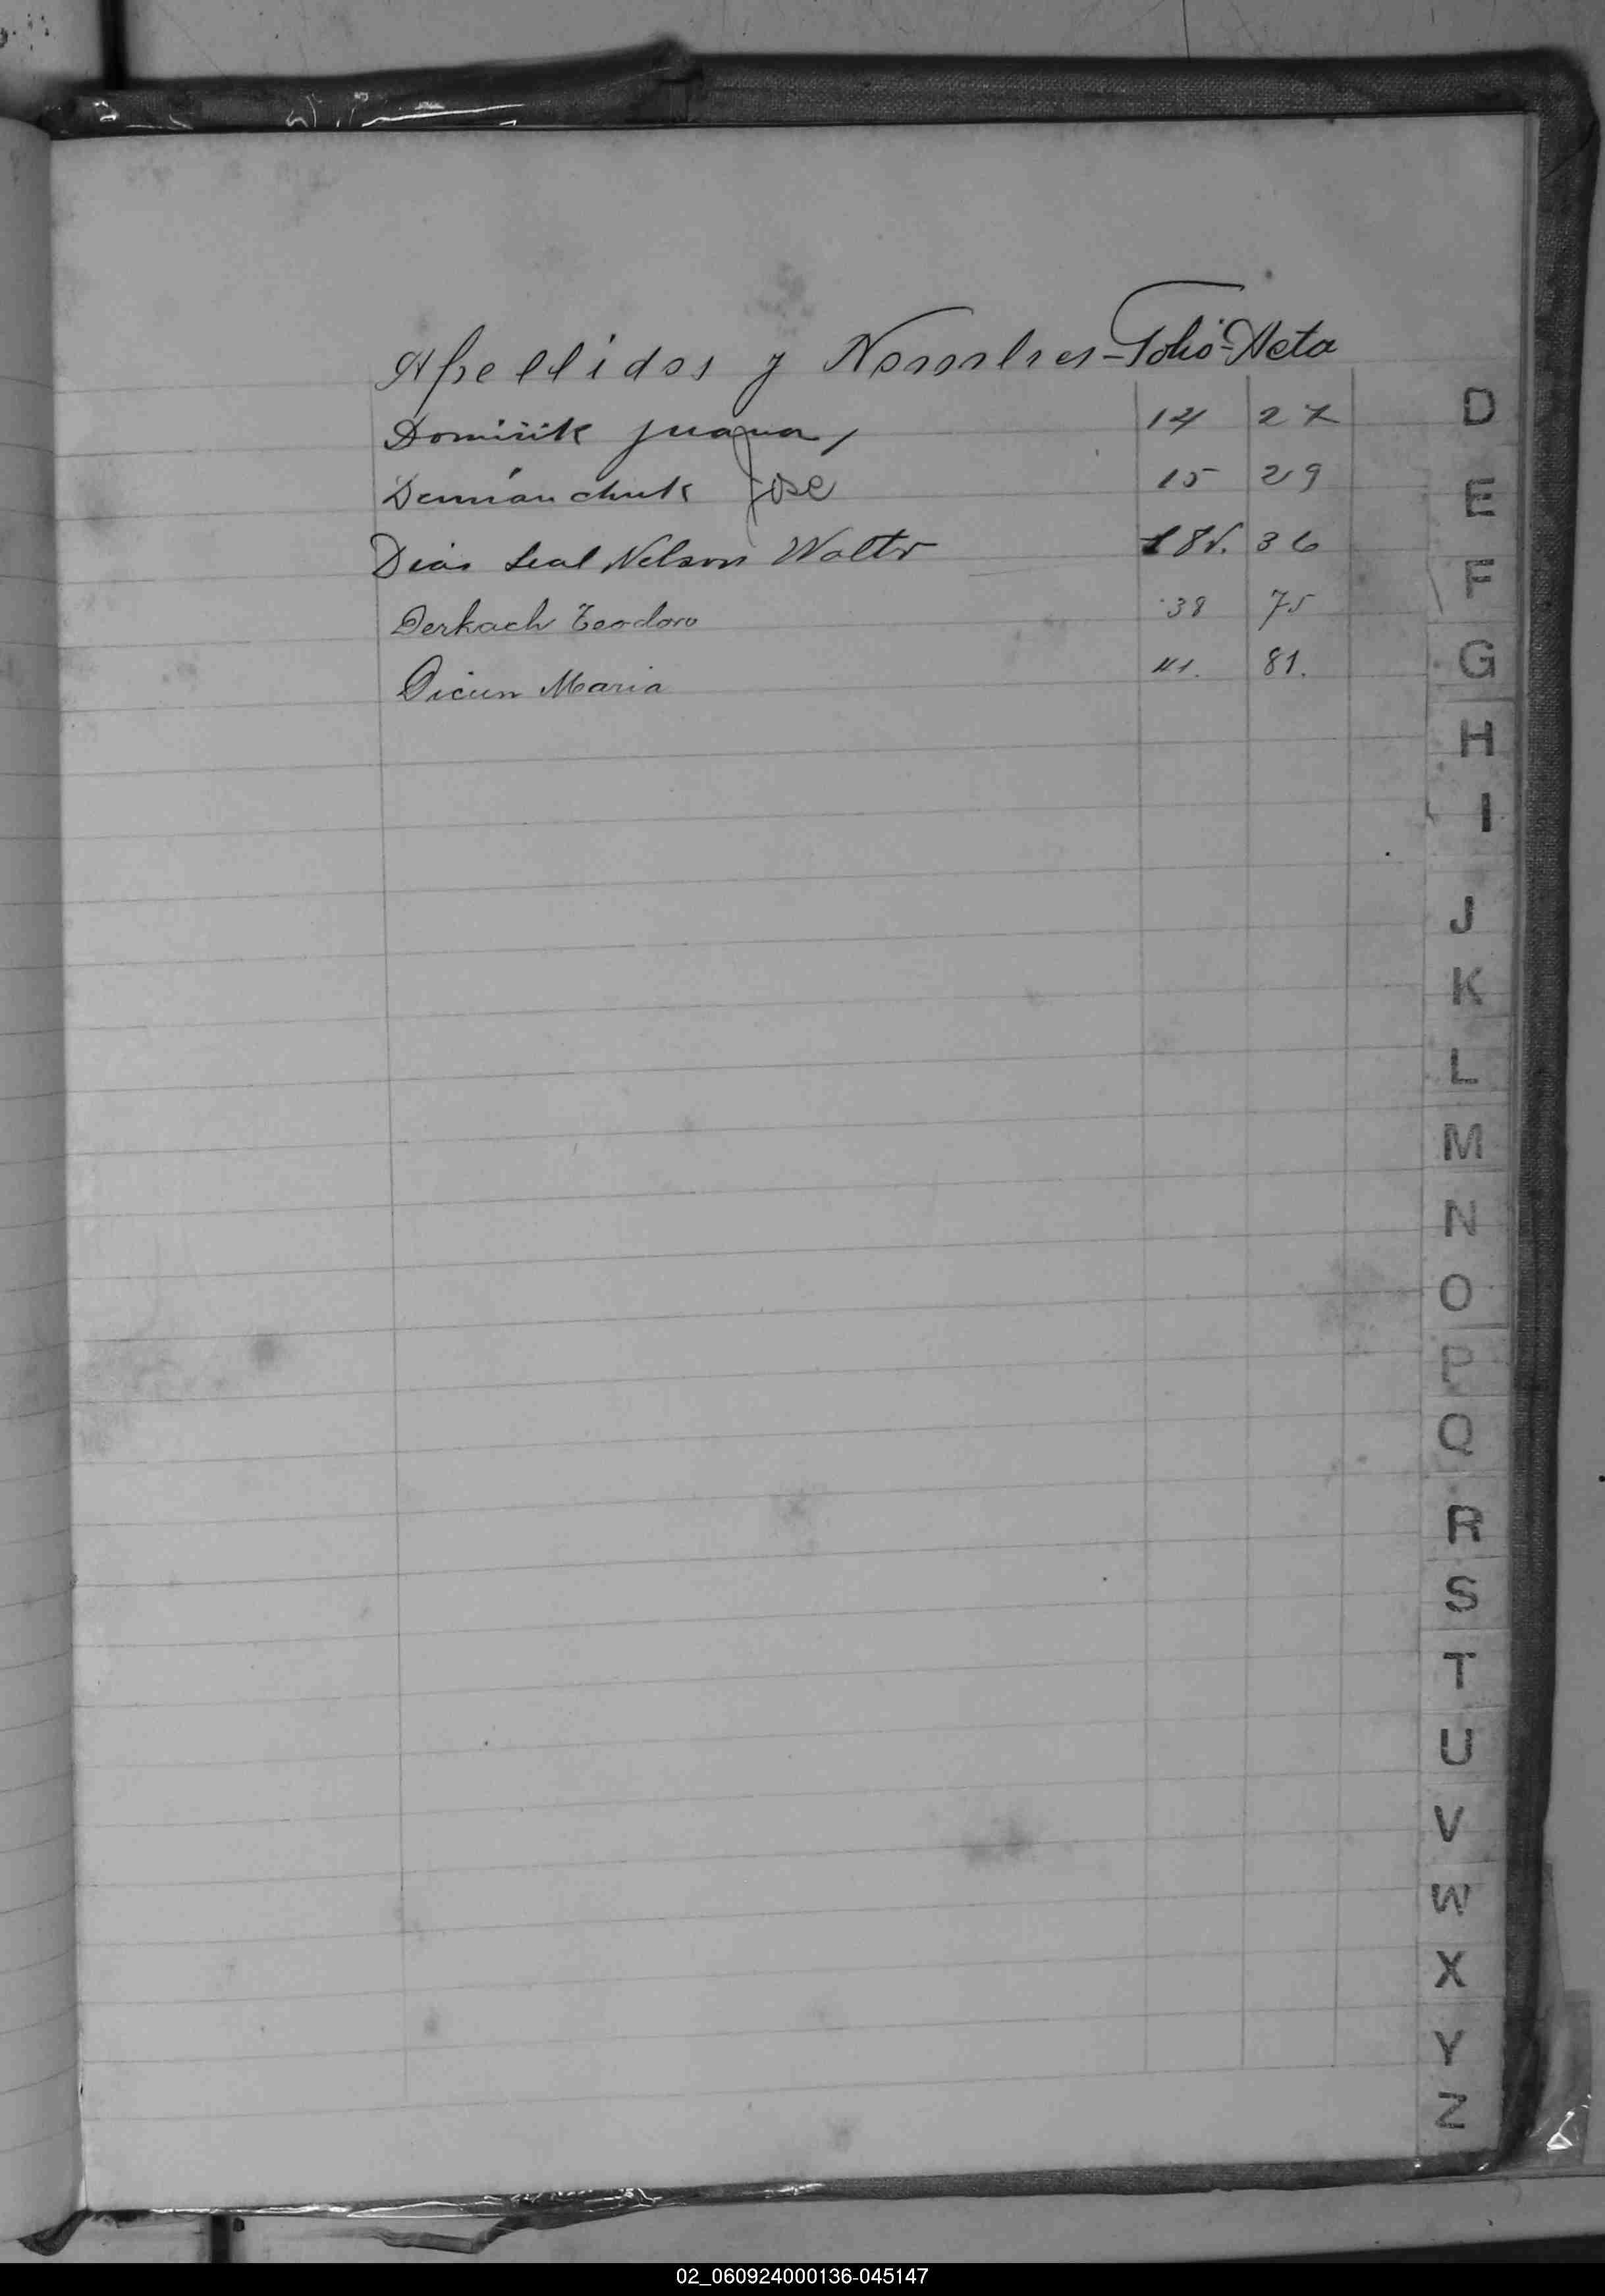 Apellidos y Nombres - Folio - Acta
Dominik Juana, 14 27
Demianchuk José 15 29
Dias Leal Nelson Walter 18v. 36
Derkach Teodoro 38 75
Dicun Maria 41. 81.
D
E
F
G
H
I
J
K
L
M
N
O
P
Q
R
S
T
U
V
W
X
Y
Z
02_060924000136-045147